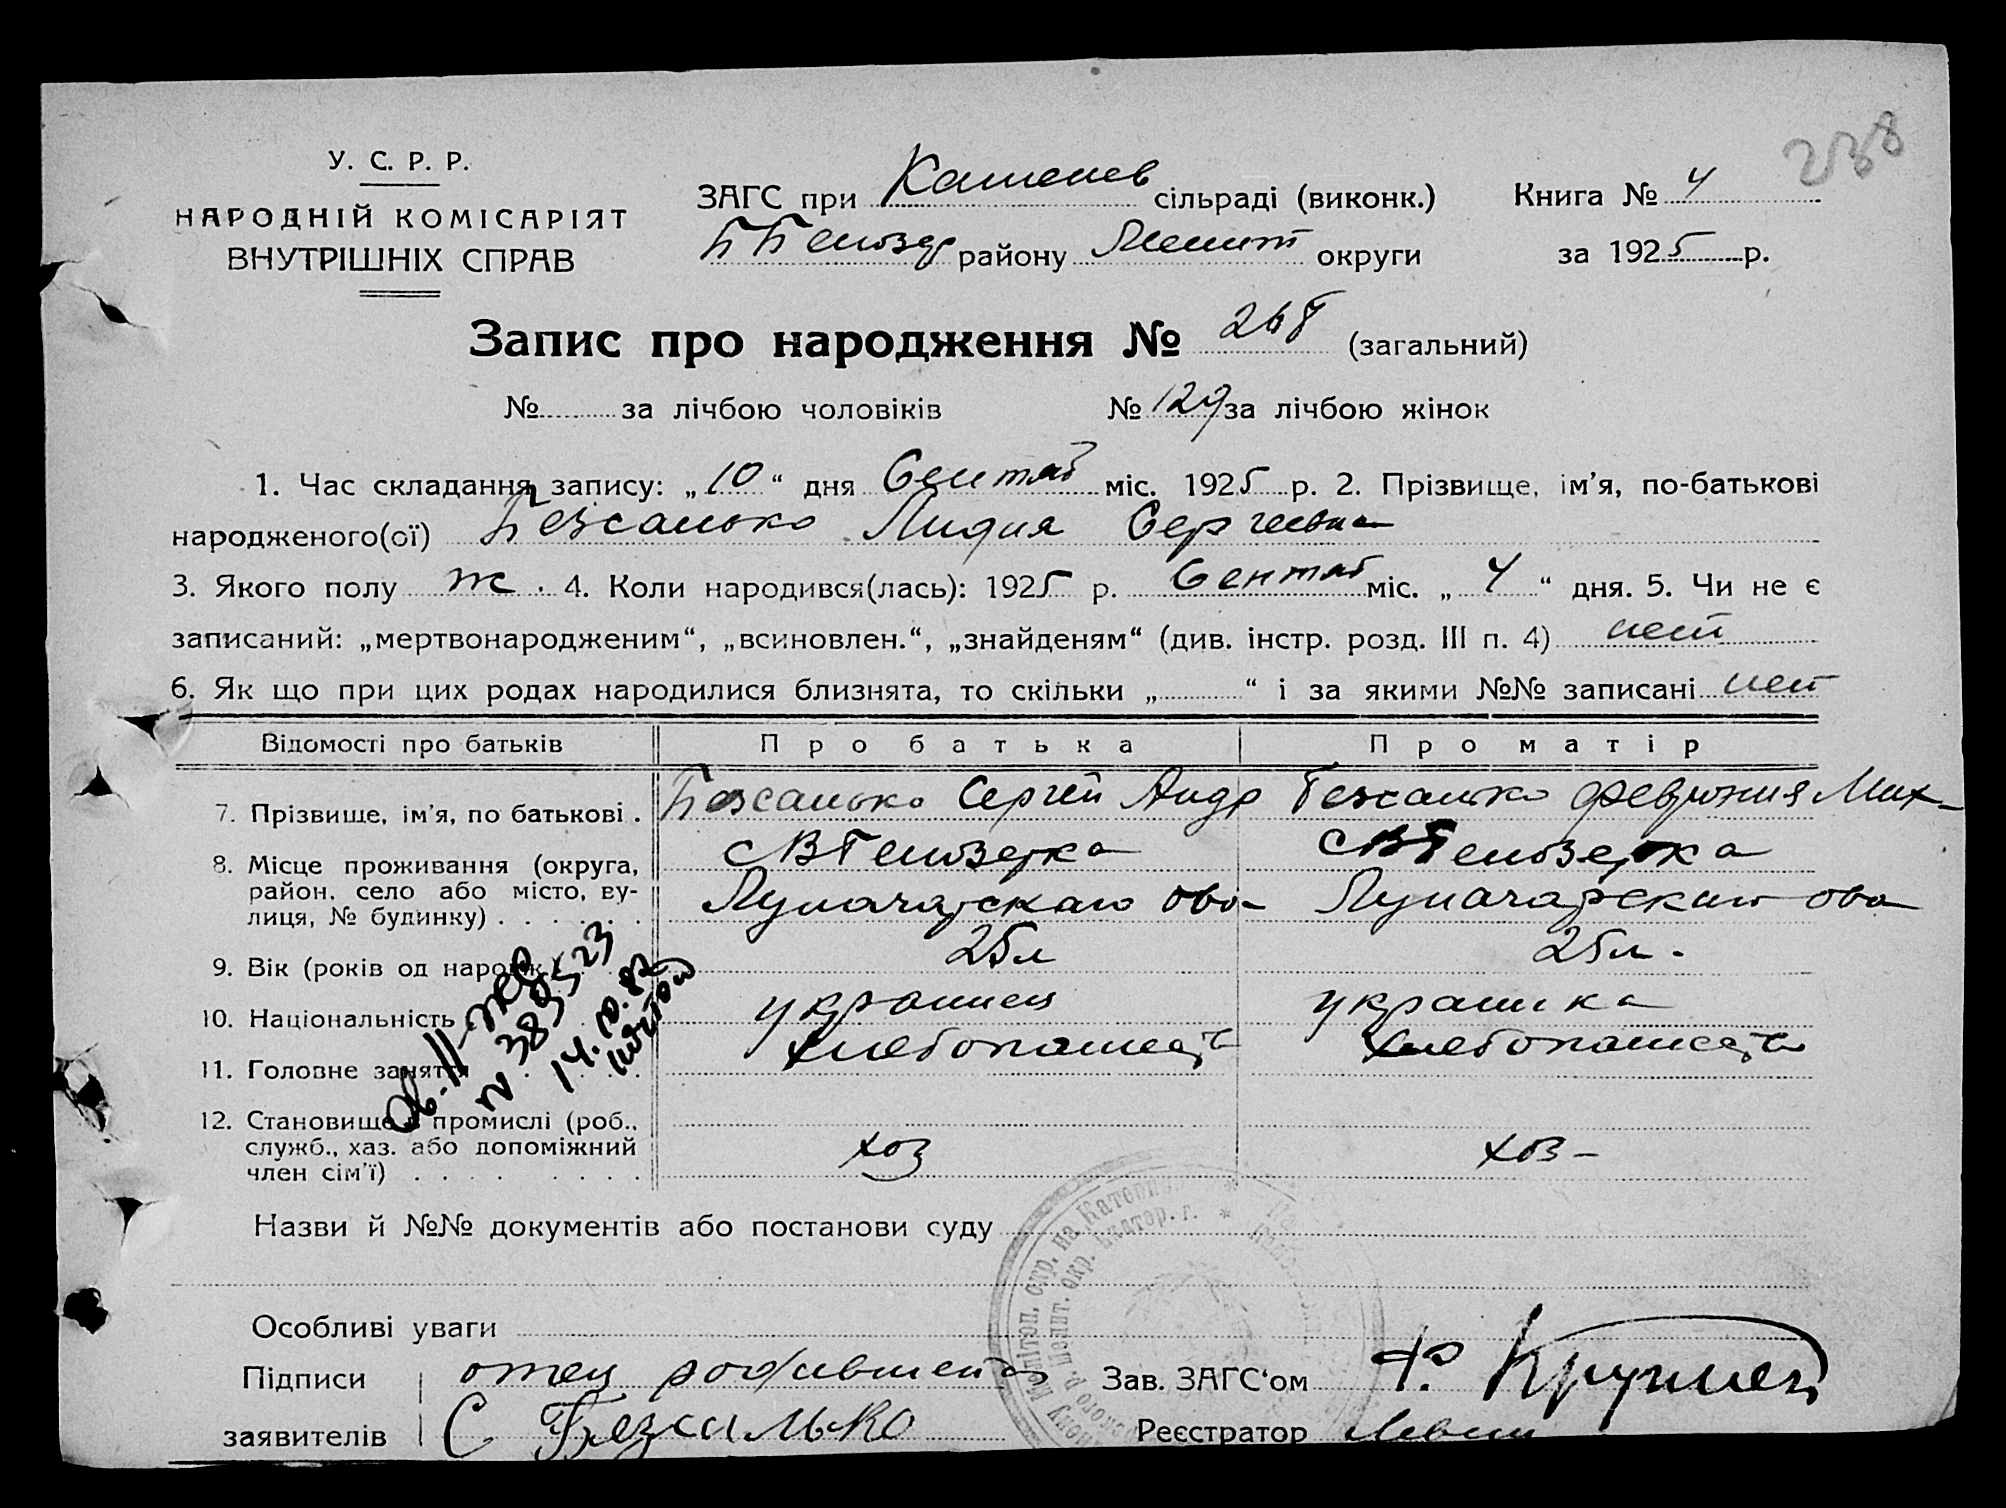 238
У. С. Р. Р.
НАРОДНІЙ КОМІСАРІЯТ
ВНУТРІШНІХ СПРАВ
ЗАГС при Каменев сільраді (виконк.)
Книга № 4
району Мелит округи
за 1925 р.
Запис про народження № (загальний)
№ за лічбою чоловіків
№ 129 за лічбою жінок
1. Час складання запису: „10“ дня Сентяб міс. 1925 р. 2. Прізвище, ім'я, по-батькові
народженого(ої) Безсалько Лидия Сергеевна
3. Якого полу ж. 4. Коли народився(лась): 1925 р. Сентяб міс. „4“ дня. 5. Чи не є
записаний: „мертвонародженим“, „всиновлен.“, „знайденям“ (див. інстр. розд. III п. 4) нет
6. Як що при цих родах народилися близнята, то скільки „ “ і за якими №№ записані нет
Відомості про батьків
Про батька
Про матір
7. Прізвище, ім'я, по батькові .
Безсалько Сергей Андр
Безсалько Феврония Мих-
8. Місце проживання (округа,
район, село або місто, ву-
лиця, № будинку) . . . . . .
с В Белозерка
Луначарскаго ова
с В Белозерка
Луначарскаго ова
9. Вік (років од народж.)
25 л
25 л.
10. Національність
украинец
украинка
11. Головне заняття
хлебопашец
12. Становище в промислі (роб.,
служб., хаз. або допоміжний
член сім'ї) . . . . . . . .
хоз
хоз-
№ 383523
14.10.82
Назви й №№ документів або постанови суду
Особливі уваги
Підписи
заявителів
отец
С Безсалько
Зав. ЗАГС'ом
Реєстратор